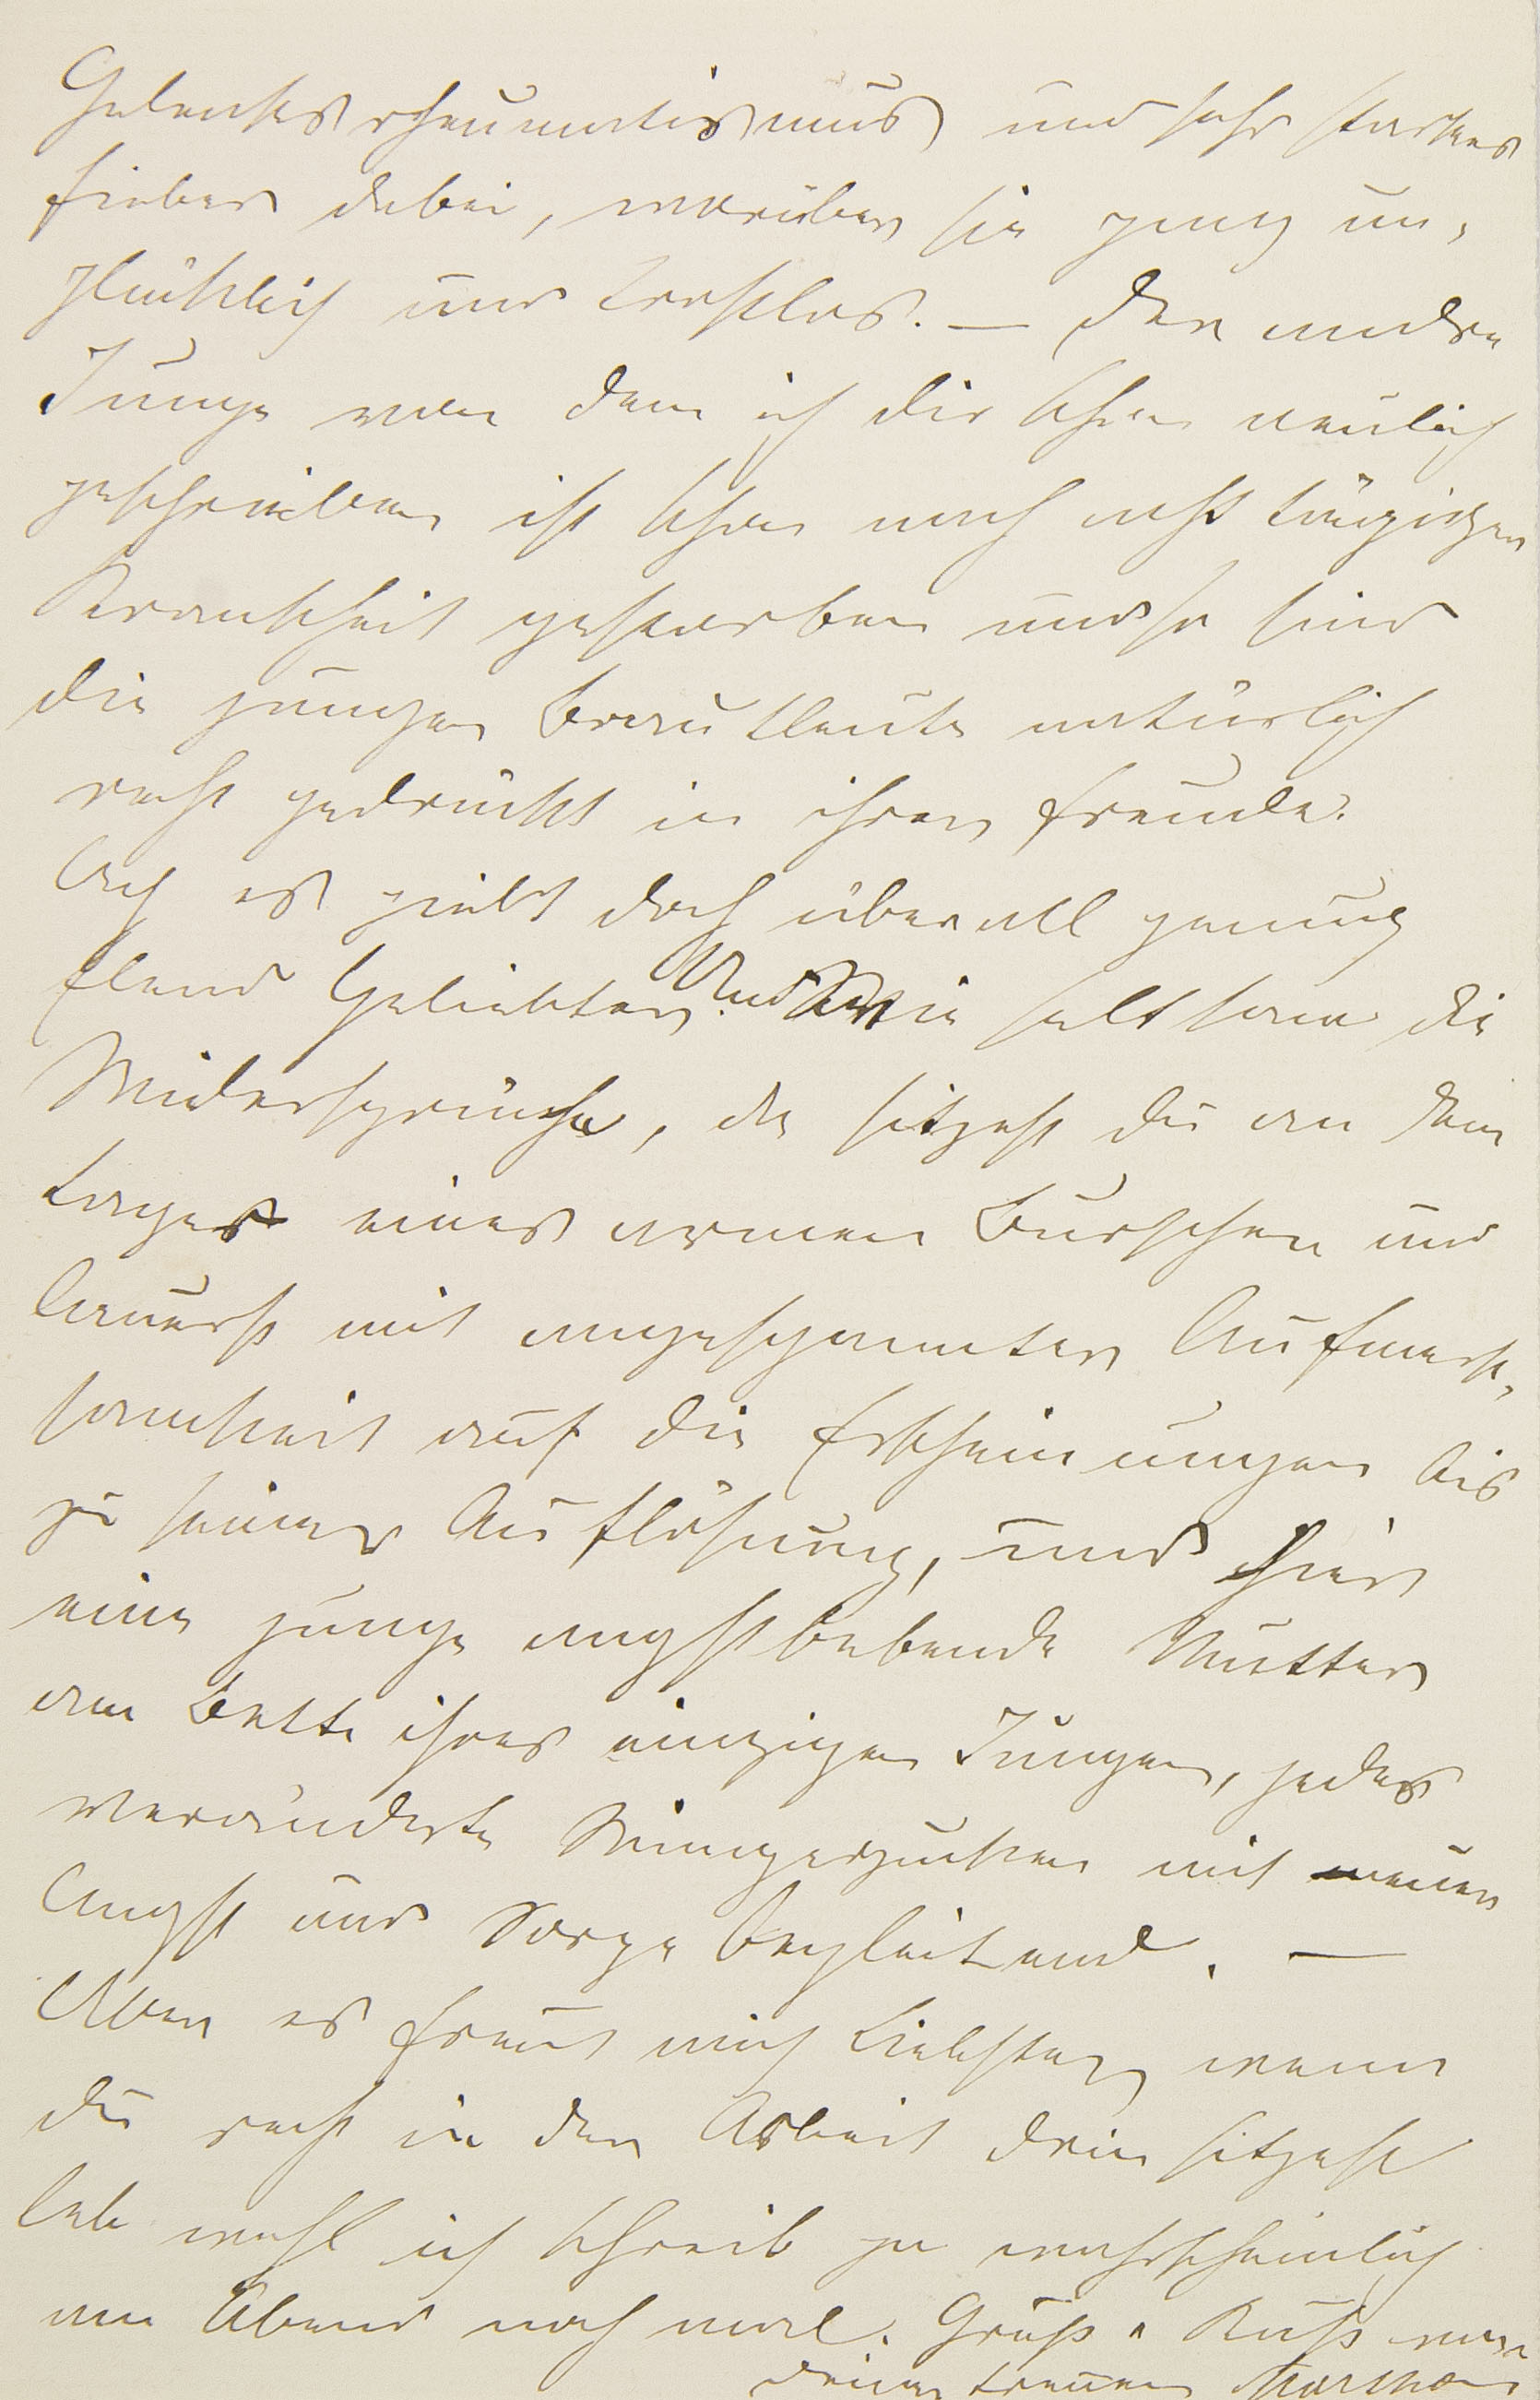 Gelenksrheumatismus und sehr starkes
Fieber dabei, worüber sie ganz un-
glücklich und trostlos. — Der andre
Junge von dem ich dir schon neulich
geschrieben ist schon nach acht tägigen
Krankheit gestorben und so sind
die jungen Brautleute natürlich
recht gedrückt in ihrer Freude.
Ach es giebt doch überall genug
Elend Geliebter. Und wie seltsam die
Widersprüche, da sitzest du an dem
Lager eines armen Burschen und
lauerst mit angespannter Aufmerk-
samkeit auf die Erscheinungen bis
zu seiner Auflösung, und hier
eine junge angstbebende Mutter
am Bette ihres einzigen Jungen, jedes
veränderte Mienenzucken mit neuer
Angst und Sorge begleitend. —
Aber es freut mich Liebster, wenn
du recht in der Arbeit drin sitzest
leb wohl ich schreib ja wahrscheinlich
am Abend noch mal. Gruß u Kuß von
deiner treuen Martha